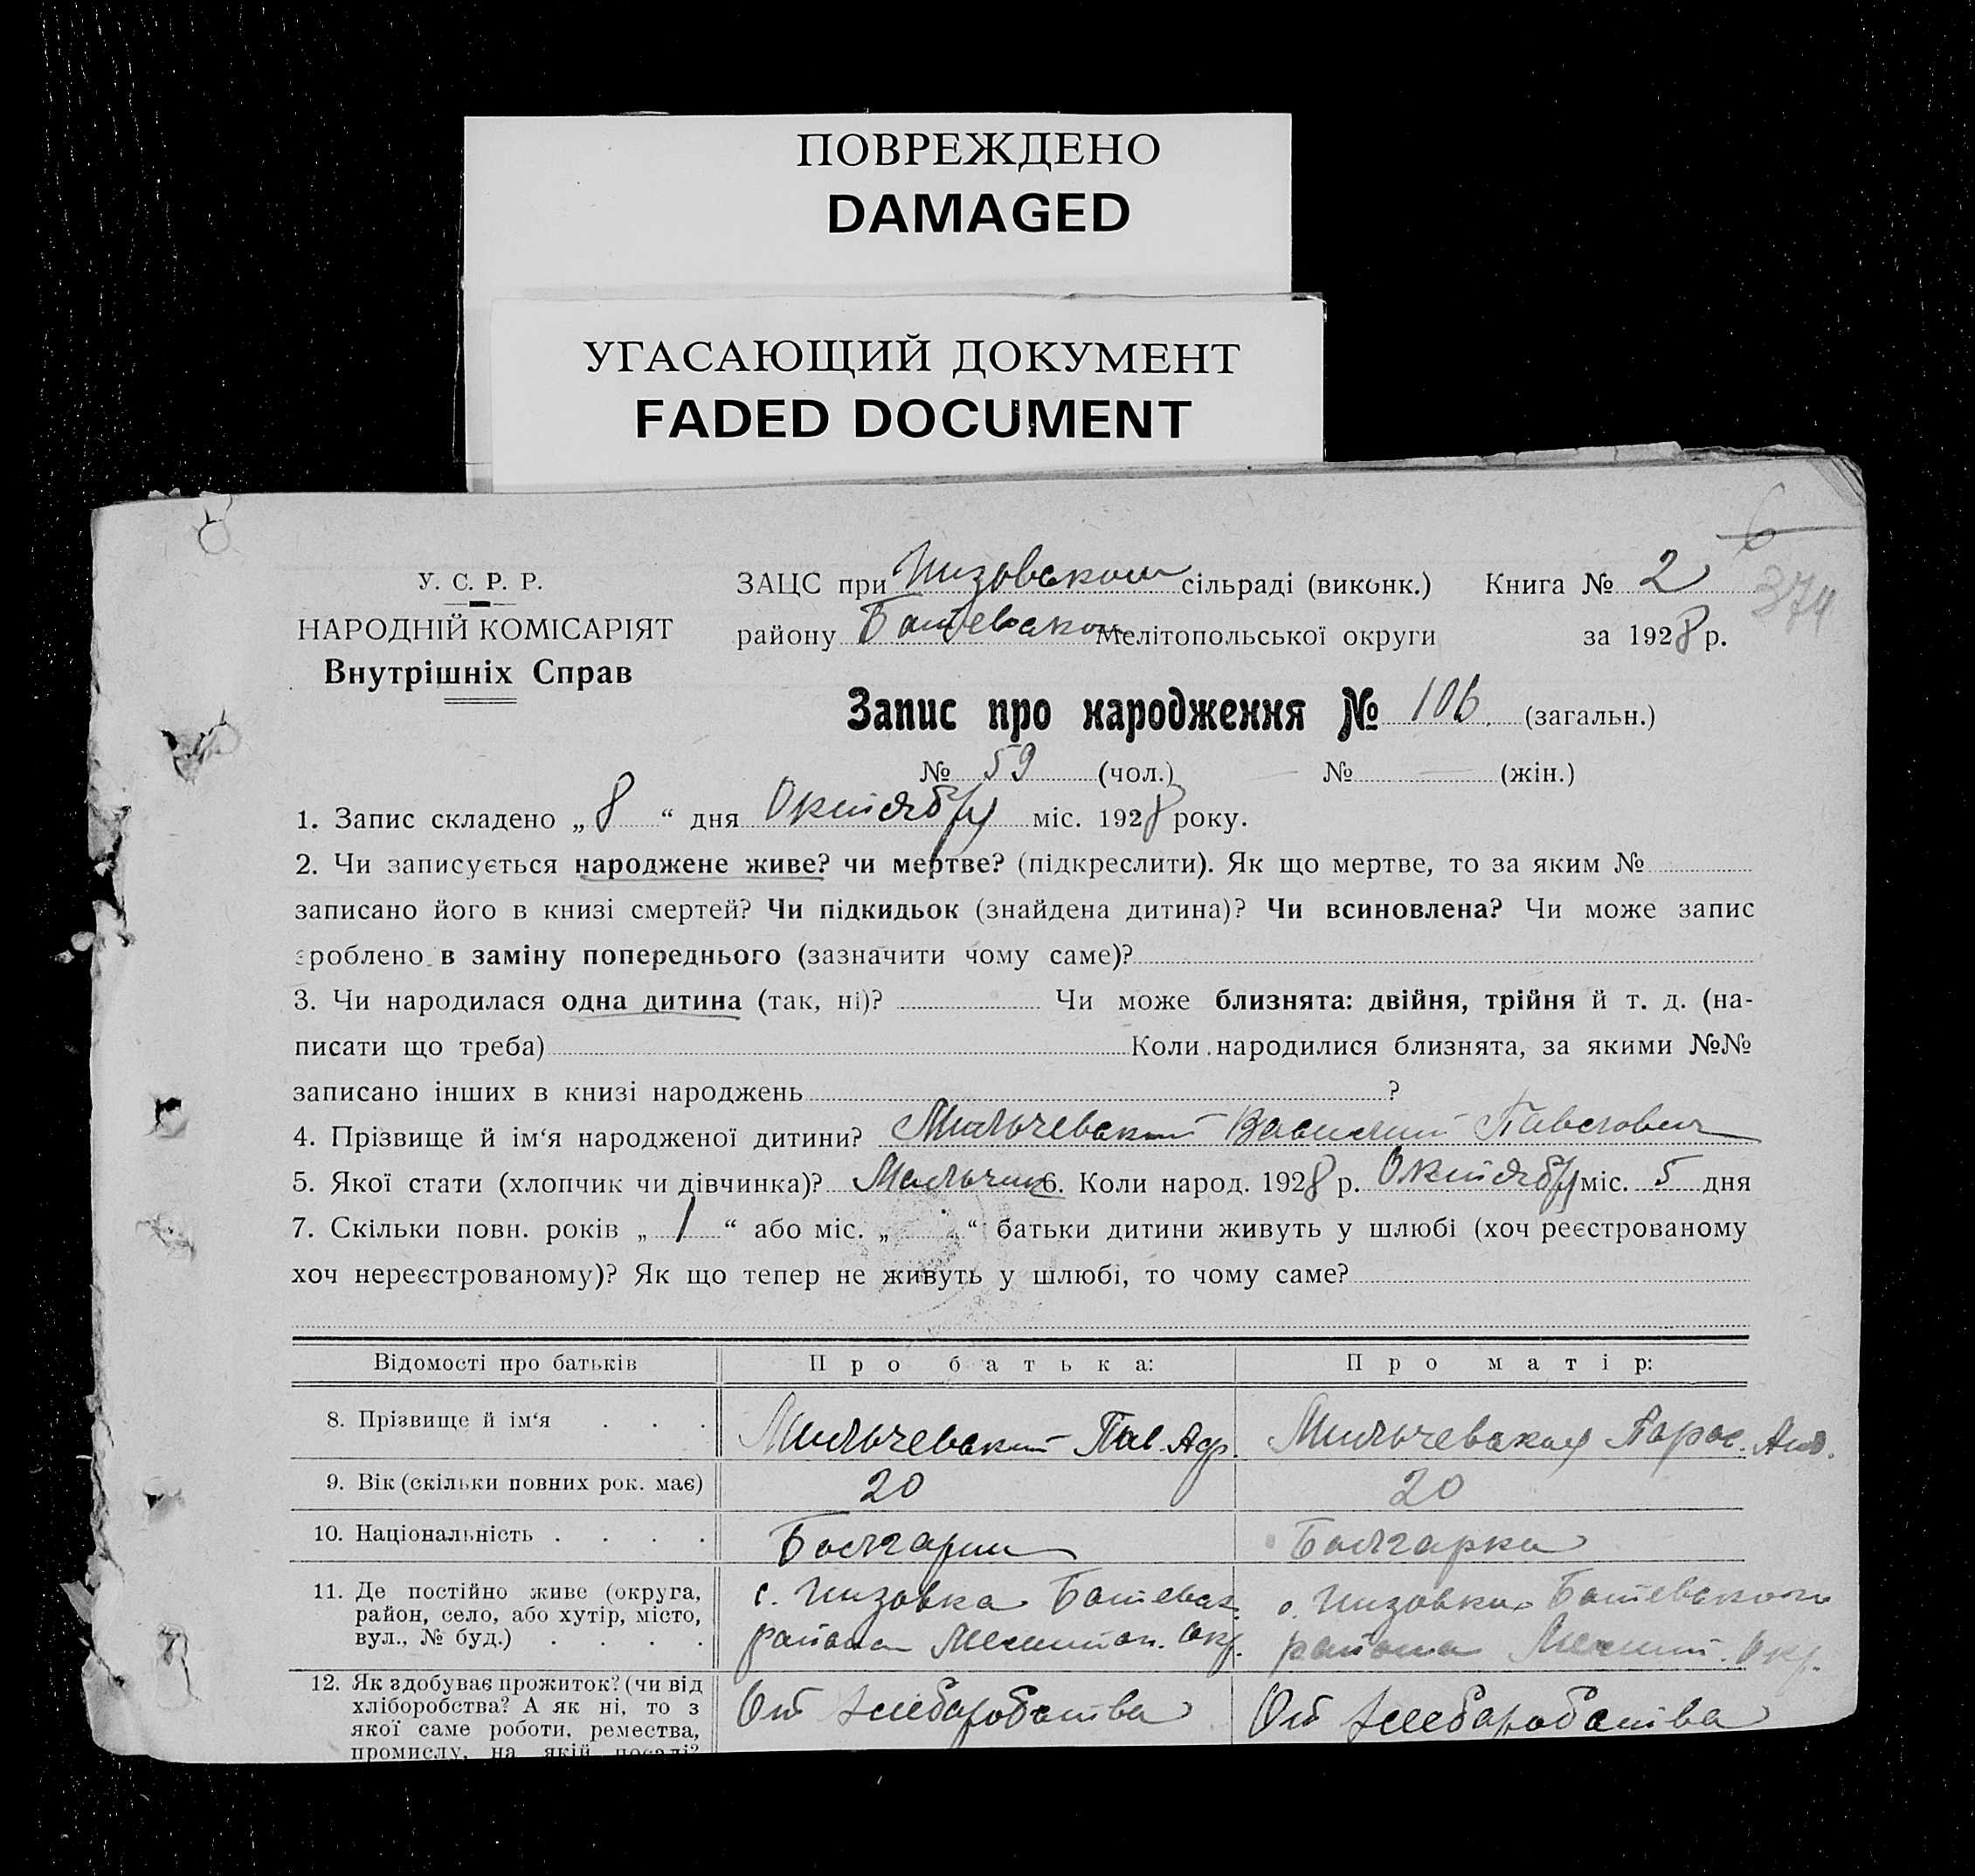 ПОВРЕЖДЕНО
DAMAGED
УГАСАЮЩИЙ ДОКУМЕНТ
FADED DOCUMENT
6
374
У. С. Р. Р.
НАРОДНІЙ КОМІСАРІЯТ
Внутрішніх Справ
ЗАЦС при Низовском сільраді (виконк.) Книга № 2
району Ботевском Мелітопольської округи за 1928 р.
Запис про народження № 106. (загальн.)
№ 59 (чол.) № — (жін.)
1. Запис складено „8“ дня Октября міс. 1928 року.
2. Чи записується народжене живе? чи мертве? (підкреслити). Як що мертве, то за яким №
записано його в книзі смертей? Чи підкидьок (знайдена дитина)? Чи всиновлена? Чи може запис
зроблено в заміну попереднього (зазначити чому саме)?
3. Чи народилася одна дитина (так, ні)? Чи може близнята: двійня, трійня й т. д. (на-
писати що треба) Коли народилися близнята, за якими №№
записано інших в книзі народжень ?
4. Прізвище й ім‘я народженої дитини? Мильчевский Василий Павлович
5. Якої стати (хлопчик чи дівчинка)? Мальчик 6. Коли народ. 1928 р. Октября міс. 5 дня
7. Скільки повн. років „1“ або міс. „ “ батьки дитини живуть у шлюбі (хоч реєстрованому
хоч нереєстрованому)? Як що тепер не живуть у шлюбі, то чому саме?
Відомості про батьків Про батька: Про матір:
8. Прізвище й ім‘я . . . Мильчевский Пав. Адр. Мильчевская Парас. Анд.
9. Вік (скільки повних рок. має) 20 20
10. Національність . . . . Болгарин Болгарка
11. Де постійно живе (округа, с. Низовка Ботевск. с. Низовка Ботевского
район, село, або хутір, місто,
вул., № буд.) . . . . района Мелитоп. Окр. района Мелит. Окр.
12. Як здобуває прожиток? (чи від От хлебаробства От хлебаробства
хліборобства? А як ні, то з
якої саме роботи, ремества,
промислу, на якій посаді?